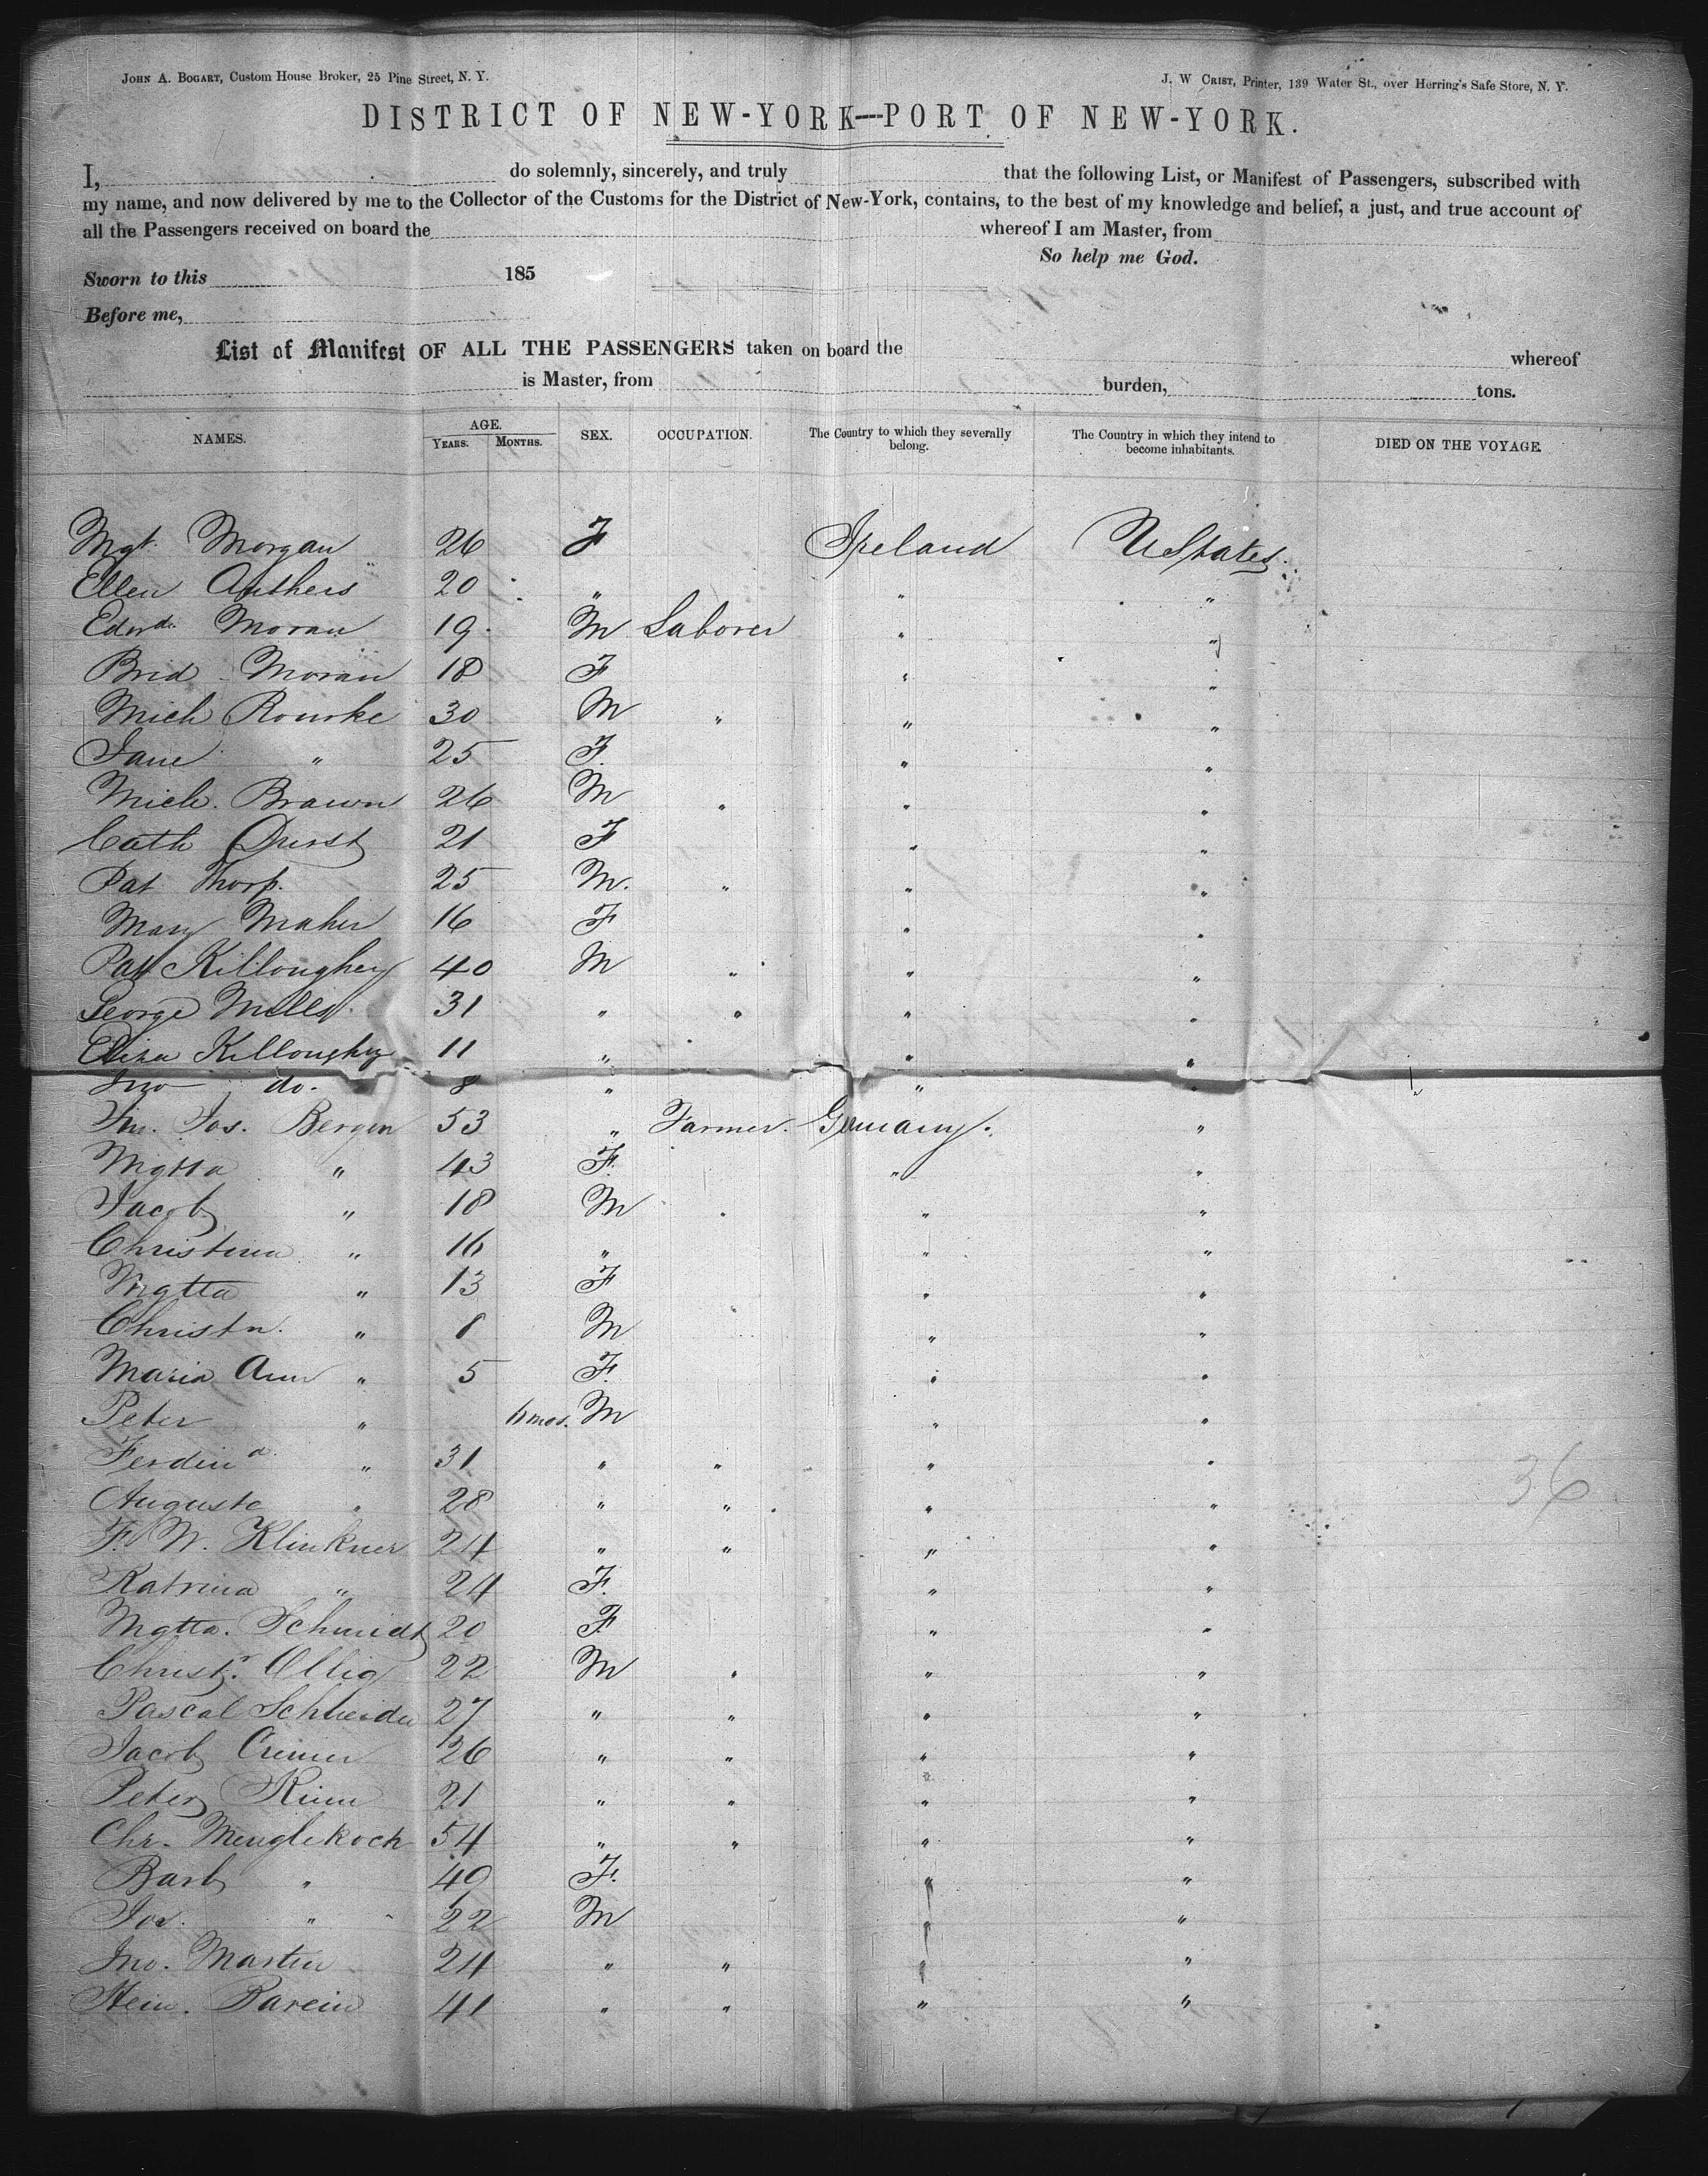 JOHN A. BOGART, Custom House Broker, 25 Pine Street, N. Y.
J. W CRIST, Printer, 139 Water St., over Herring's Safe Store, N. Y.
DISTRICT OF NEW-YORK—PORT OF NEW-YORK.
I, do solemnly, sincerely, and truly that the following List, or Manifest of Passengers, subscribed with
my name, and now delivered by me to the Collector of the Customs for the District of New-York, contains, to the best of my knowledge and belief, a just, and true account of
all the Passengers received on board the whereof I am Master, from
So help me God.
Sworn to this 185
Before me,
List of Manifest OF ALL THE PASSENGERS taken on board the whereof
is Master, from burden, tons.
NAMES. AGE. YEARS. MONTHS. SEX. OCCUPATION. The Country to which they severally belong. The Country in which they intend to become inhabitants. DIED ON THE VOYAGE.
Mgt. Morgan 26 F Ireland U States.
Ellen 20 " " "
Edwd. Moran 19 M Laborer " "
Brid Moran 18 F " "
Mich Rourke 30 M " " "
Jane " 25 F. " "
Mich. Brawn 26 M " " "
Cath 21 F " "
Pat Thorp. 25 M. " " "
Mary Maher 16 F " "
Pat Killoughey 40 M " " "
George Mills 31 " " " "
Eliza Killoughey 11 " " "
Jno do. 8 " " "
Jos. Bergen 53 " Farmer. Germany. "
Mgtta " 43 F. " "
Jacob " 18 M " " "
Christina " 16 " " "
Mgtta " 13 F " "
Christn. " 8 M " "
Maria Ann " 5 F. " "
Peter " 6 mos. M " "
Ferdind. " 31 " " " "
Auguste " 28 " " " "
36
F. W. Klinkner 24 " " " "
Katrina " 24 F. " "
Mgtta. Schmidt 20 F " "
Christr. Ollig 22 M " " "
Pascal Schneider 27 " " " "
Jacob Cremer 26 " " " "
Peter 21 " " " "
Chr. Menglikoch 54 " " " "
Barb " 49 F. " "
Jos. " 22 M " "
Jno. Martin 24 " " " "
Hein. Barein 41 " " " "